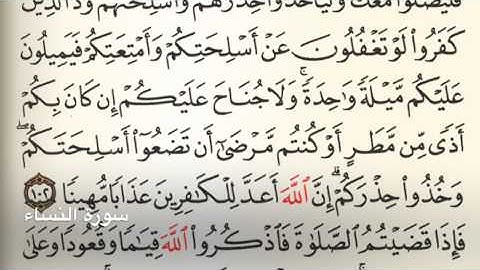 فَلْيُصَلُّوا۟ مَعَكَ وَلْيَأْخُذُوا۟ حِذْرَهُمْ وَأَسْلِحَتَهُمْ وَدَّ ٱلَّذِينَ
كَفَرُوا۟ لَوْ تَغْفُلُونَ عَنْ أَسْلِحَتِكُمْ وَأَمْتِعَتِكُمْ فَيَمِيلُونَ
عَلَيْكُم مَّيْلَةً وَٰحِدَةً ۚ وَلَا جُنَاحَ عَلَيْكُمْ إِن كَانَ بِكُمْ
أَذًى مِّن مَّطَرٍ أَوْ كُنتُم مَّرْضَىٰٓ أَن تَضَعُوٓا۟ أَسْلِحَتَكُمْ ۖ
وَخُذُوا۟ حِذْرَكُمْ ۗ إِنَّ ٱللَّهَ أَعَدَّ لِلْكَٰفِرِينَ عَذَابًا مُّهِينًا ١٠٢
سورة النساء
فَإِذَا قَضَيْتُمُ ٱلصَّلَوٰةَ فَٱذْكُرُوا۟ ٱللَّهَ قِيَٰمًا وَقُعُودًا وَعَلَىٰ